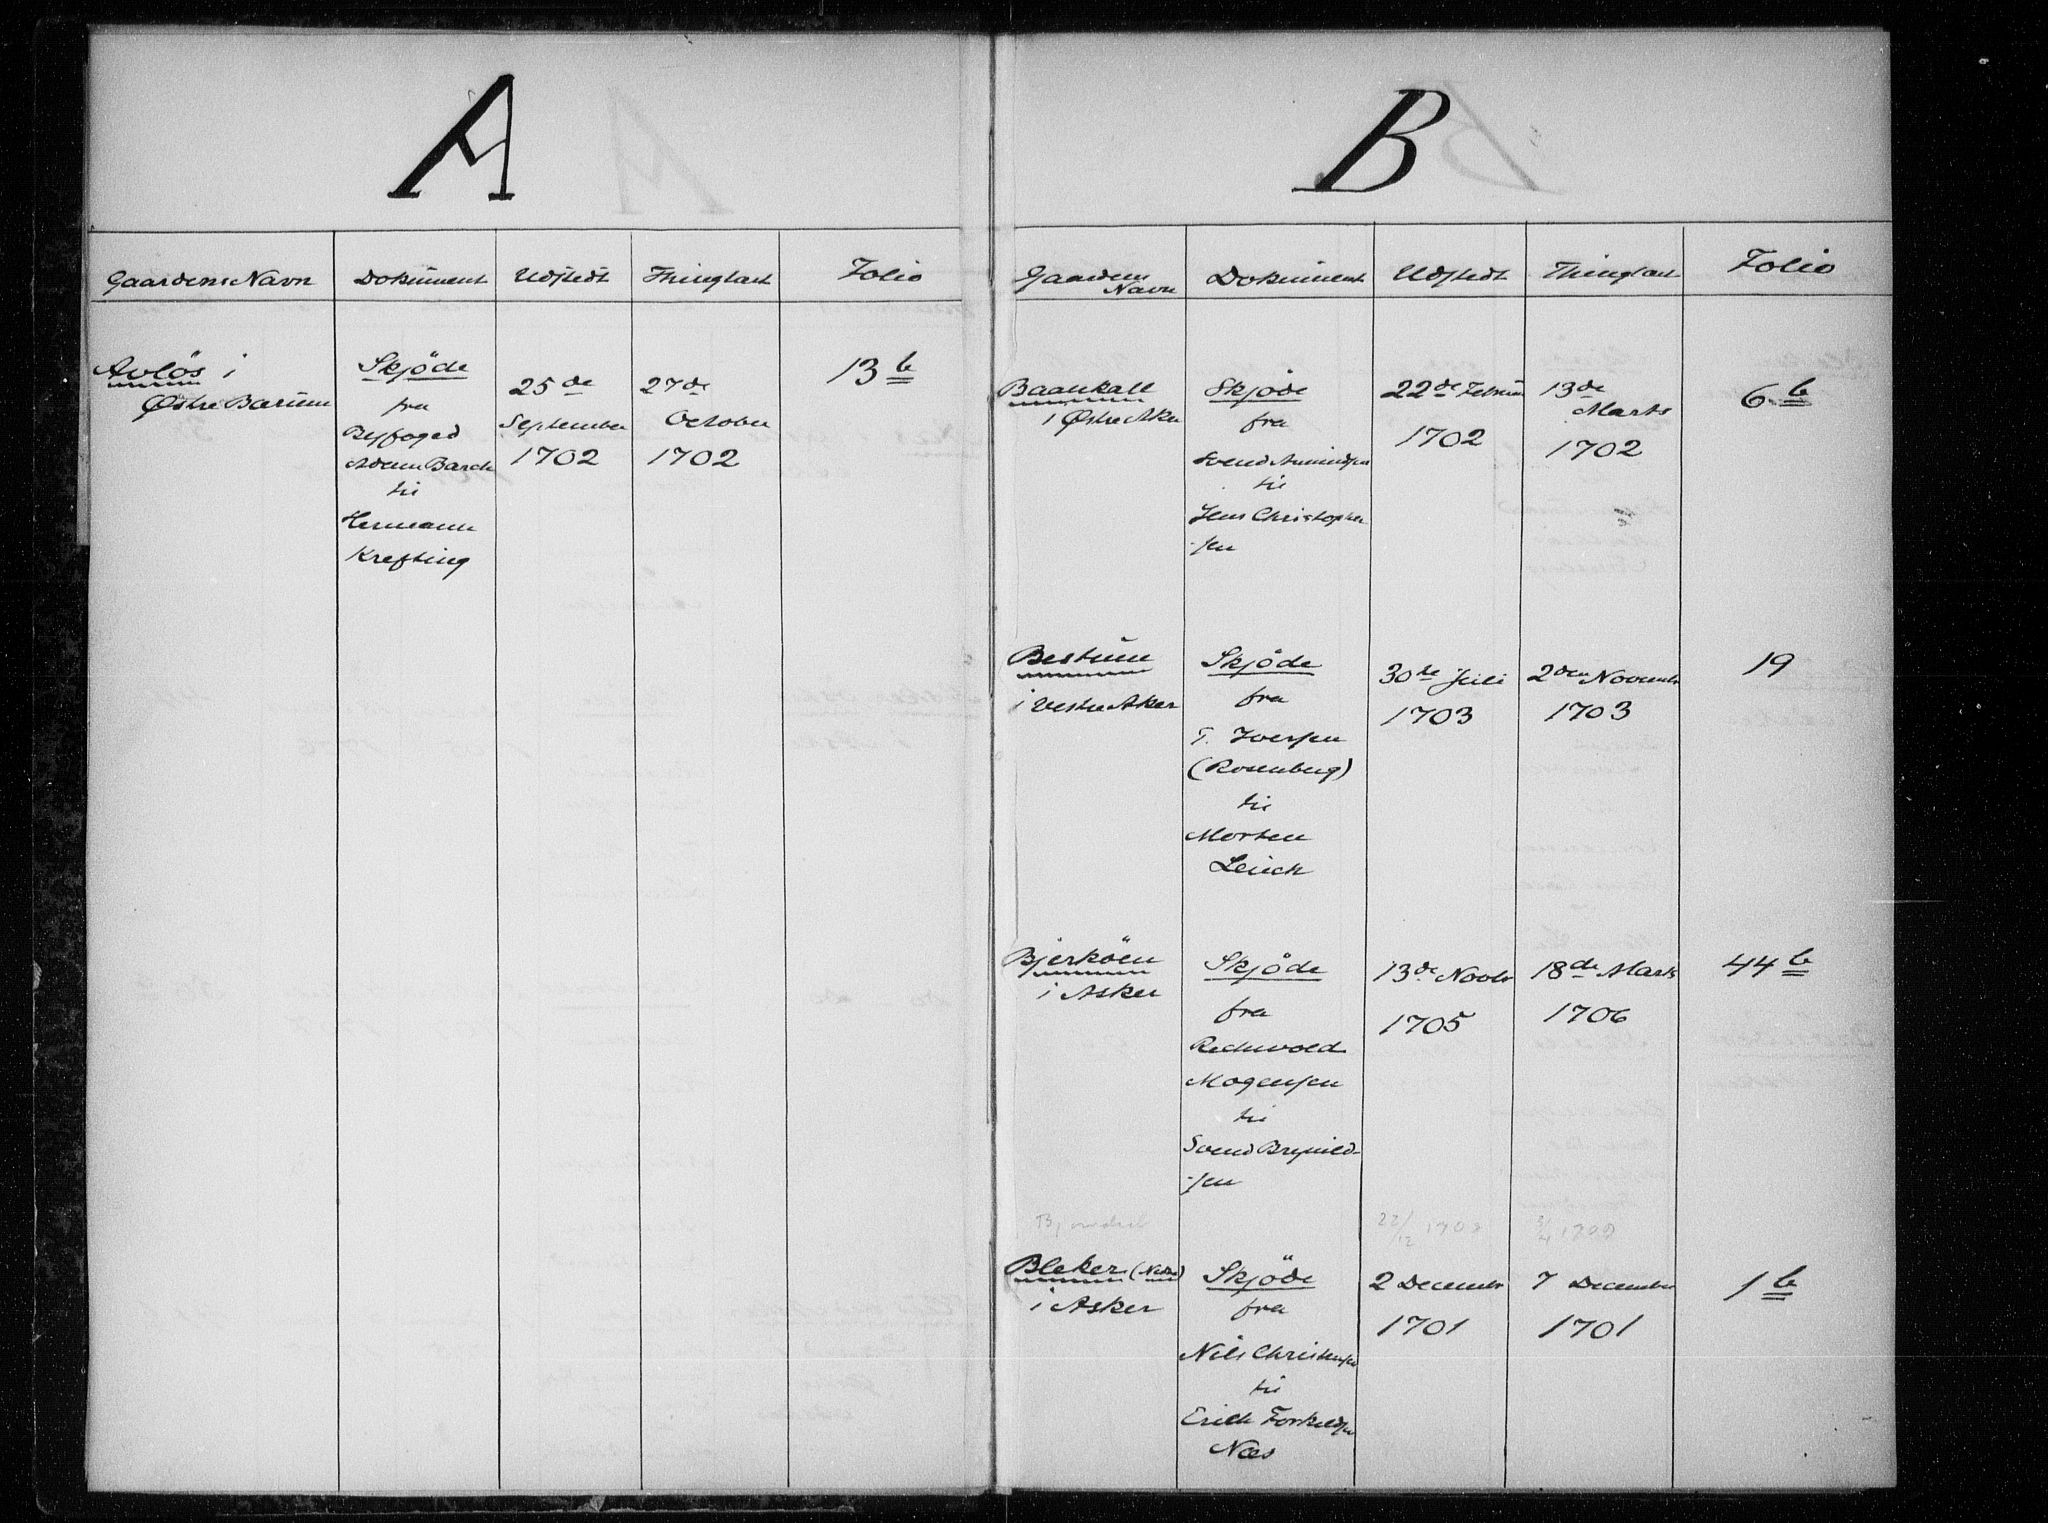 A
Gaardens Navn Dokument Udstedt Thinglæst Folio
Avlös i
Østre Bærum
Skjöde
fra
Byfoged
Adam Barch
til
Hermann
Krefting
25de
September
1702
27de
October
1702
13 b
B
Gaardens
Navn
Dokument Udstedt Thinglæst Folio
Baankall
i Østre Aker
Skjøde
fra
Svend Amundsen
til
Jens Christopher
-sen
22de Februar
1702
13de
Marts
1702
6 b
Bestum
i Vestre Aker
Skjøde
fra
T. Iversen
(Rosenberg)
til
Morten
Leuch
30te Juli
1703
2den Novembr
1703
19
Bjerköen
i Asker
Skjøde
fra
Mogensen
til
Svend Brynild-
-sen
13de Novbr
1705
18de Marts
1706
44 b
22/12 170
Bleker (Nedre)
i Asker
Skjöde
fra
Nils Christensen
til
Erich Torkeldsen
Næs
2 Decembr
1701
7 December
1701
1 b